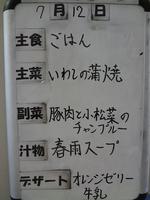 7月12日
主食 ごはん
主菜 いわしの蒲焼
副菜 豚肉と小松菜の
チャンプルー
汁物 春雨スープ
デザート オレンジゼリー
牛乳